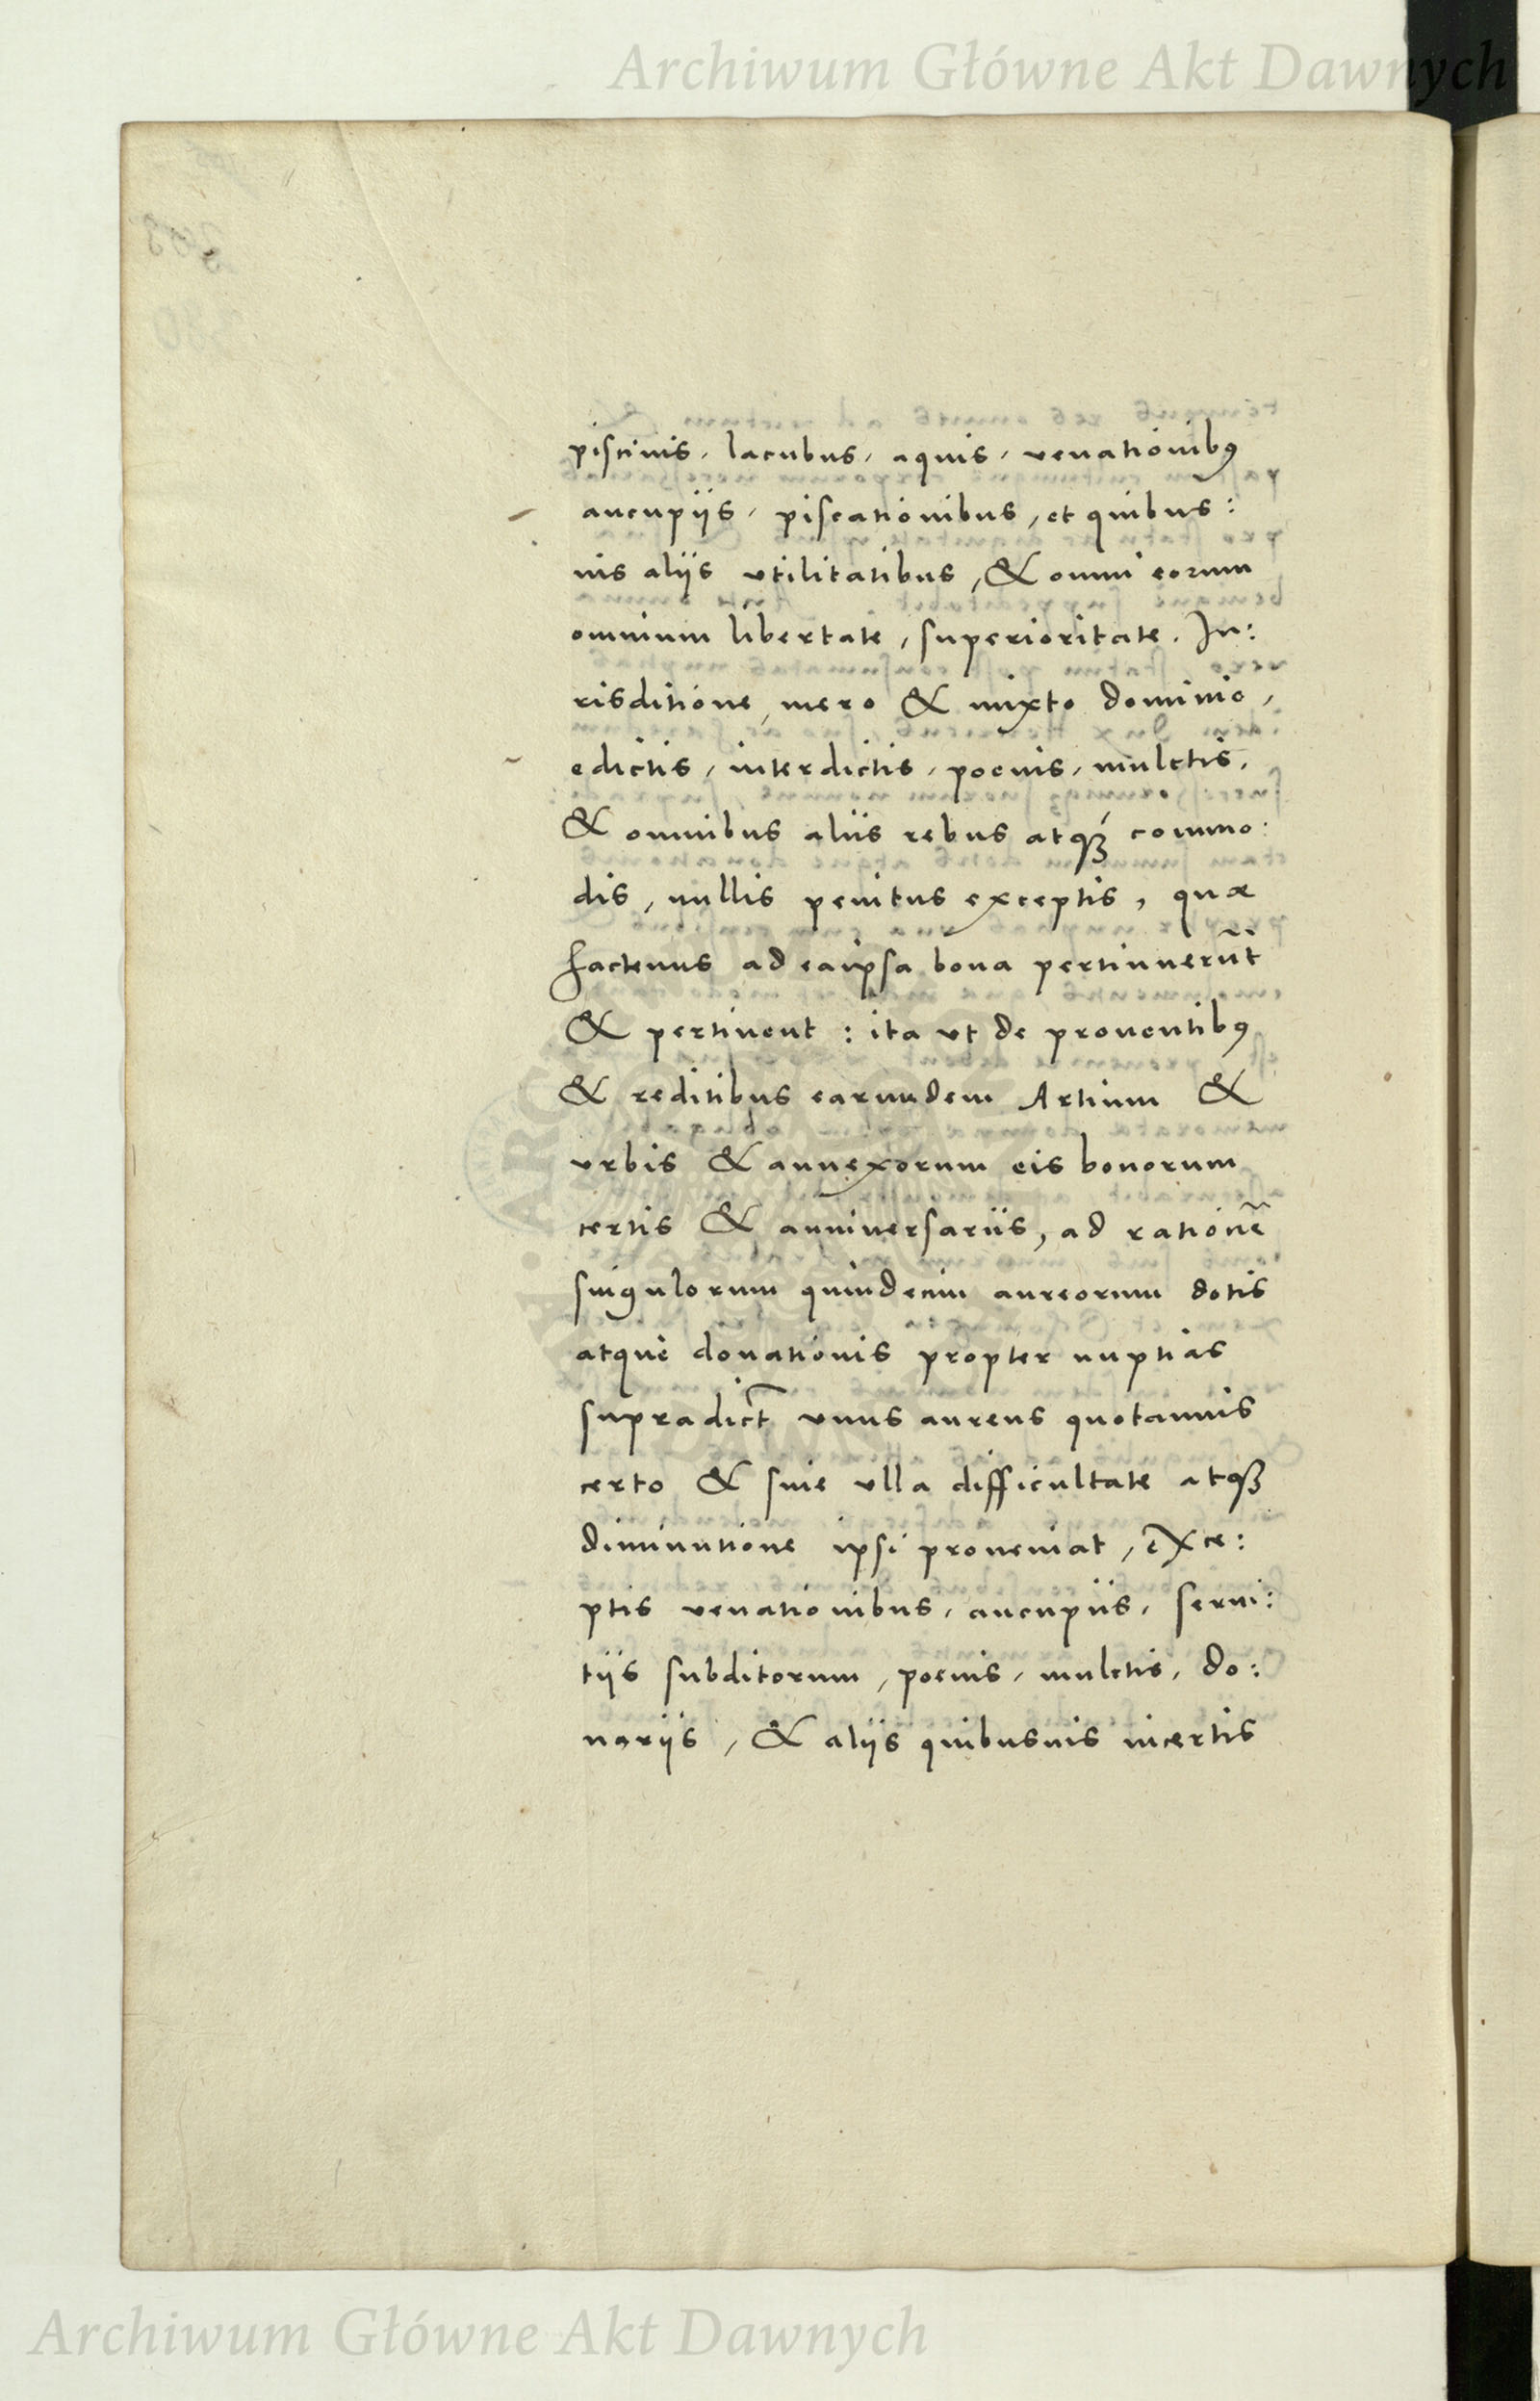 Archiwum Główne Akt Dawnych
piscinis, lacubus, aquis, venationibꝰ
aucupijs, piscationibus, et quibus:
uis alijs vtilitatibus, & omni eorum
omnium libertate, superioritate. Iu:
risditione, mero & mixto dominio,
edictis, interdictis, poenis, mulctis,
& omnibus aliis rebus atqꝫ commo:
dis, nullis penitus exceptis, quæ
hactenus ad eaipsa bona pertinuerũt
& pertinent: ita ut de prouentibꝰ
& reditibus earundem Artium &
vrbis & annexorum eis bonorum
certis & anniuersariis, ad rationẽ
singulorum quindecim aureorum dotis
atque donationis propter nuptias
supradict̃ vnus aureus quotannis
certo & sine vlla difficultate atqꝫ
diminutione ipsi proueniat, Exce:
ptis venationibus, aucupiis, serui:
tijs subditorum, poenis, mulctis, do:
narijs, & alijs quibusuis incertis
Archiwum Główne Akt Dawnych